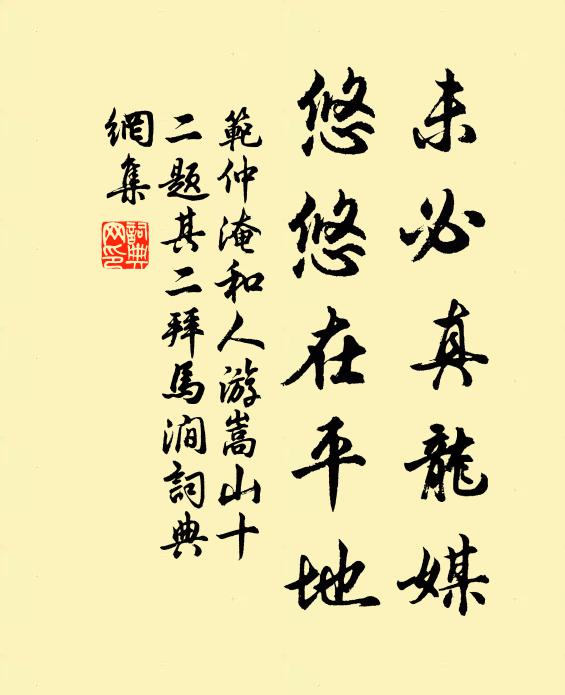 未必真龍媒
悠悠在平地
範仲淹和人游嵩山十
二題其二拜馬澗詞典
網集
詞典
网印